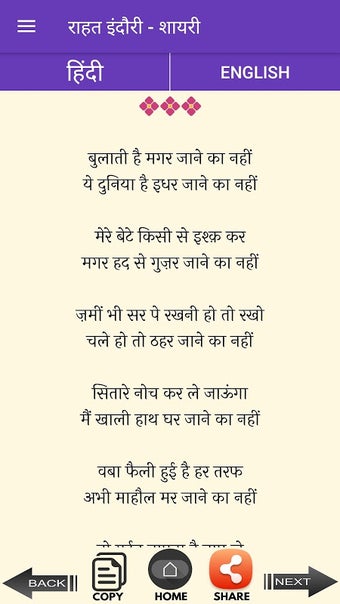 राहत इंदौरी - शायरी
हिंदी
ENGLISH
बुलाती है मगर जाने का नहीं
ये दुनिया है इधर जाने का नहीं
मेरे बेटे किसी से इश्क़ कर
मगर हद से गुज़र जाने का नहीं
ज़मीं भी सर पे रखनी हो तो रखो
चले हो तो ठहर जाने का नहीं
सितारे नोच कर ले जाऊंगा
मैं खाली हाथ घर जाने का नहीं
वबा फैली हुई है हर तरफ
अभी माहौल मर जाने का नहीं
BACK
COPY
HOME
SHARE
NEXT